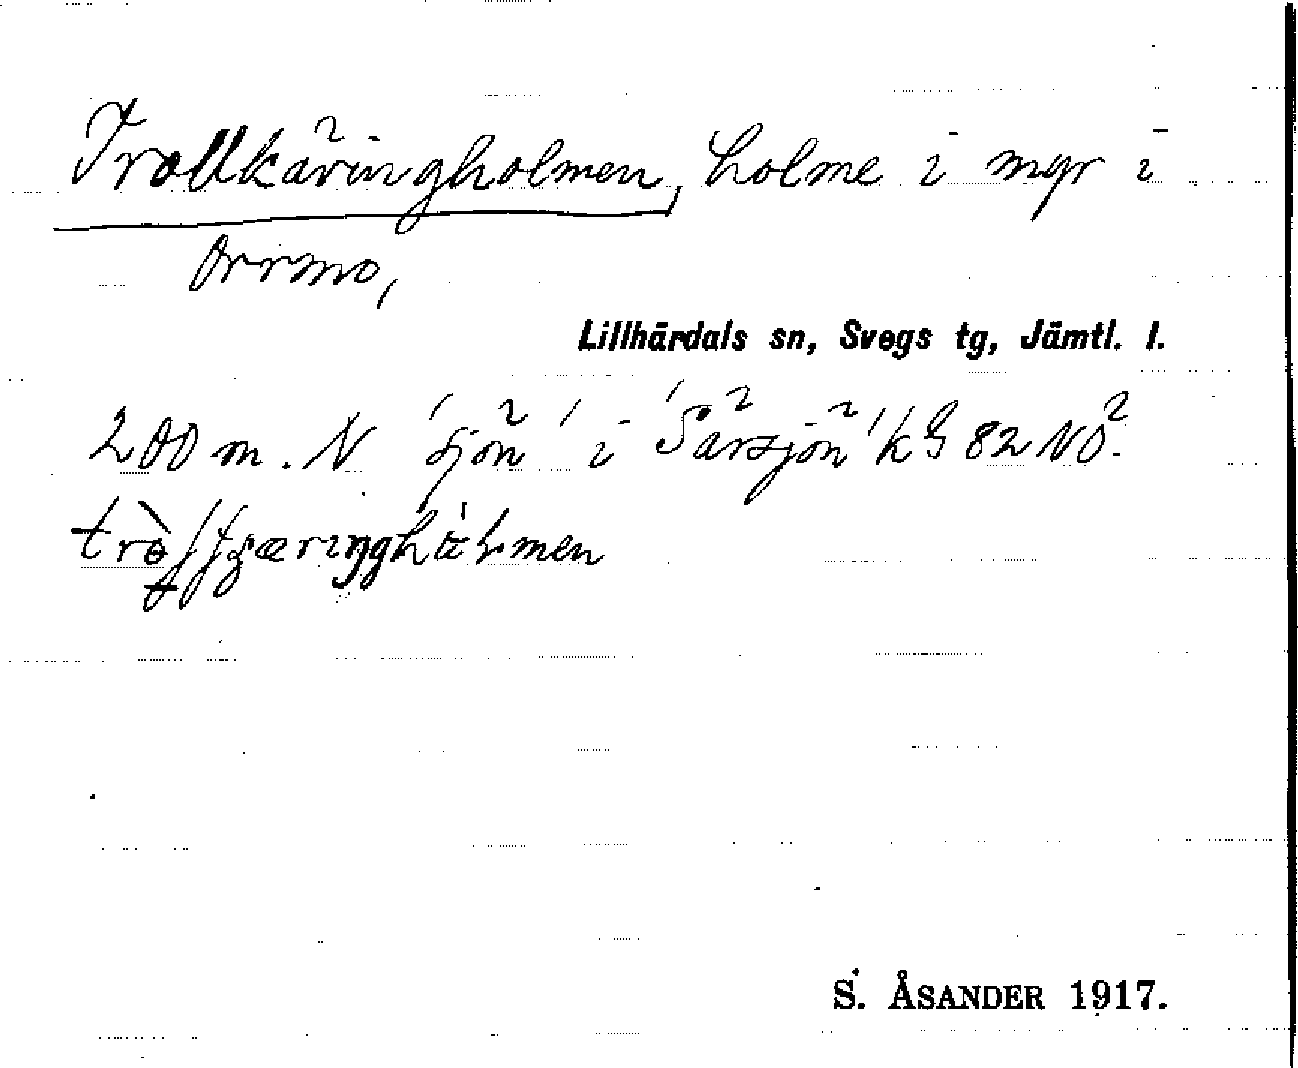 Trollkäringholmen, holme i myr i
Orrmo,
Lillhärdals sn, Svegs tg, Jämtl. l.
200 m. N 'sjön' i 'Särsjön' k G 82 NO².
S. ÅSANDER 1917.